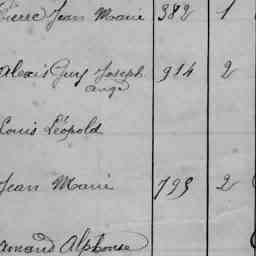 Pierre Jean Marie 382 1
Alexis Guy Joseph 914 2
ange
Louis Léopold
Jean Marie 795 2
Armand Alphonse